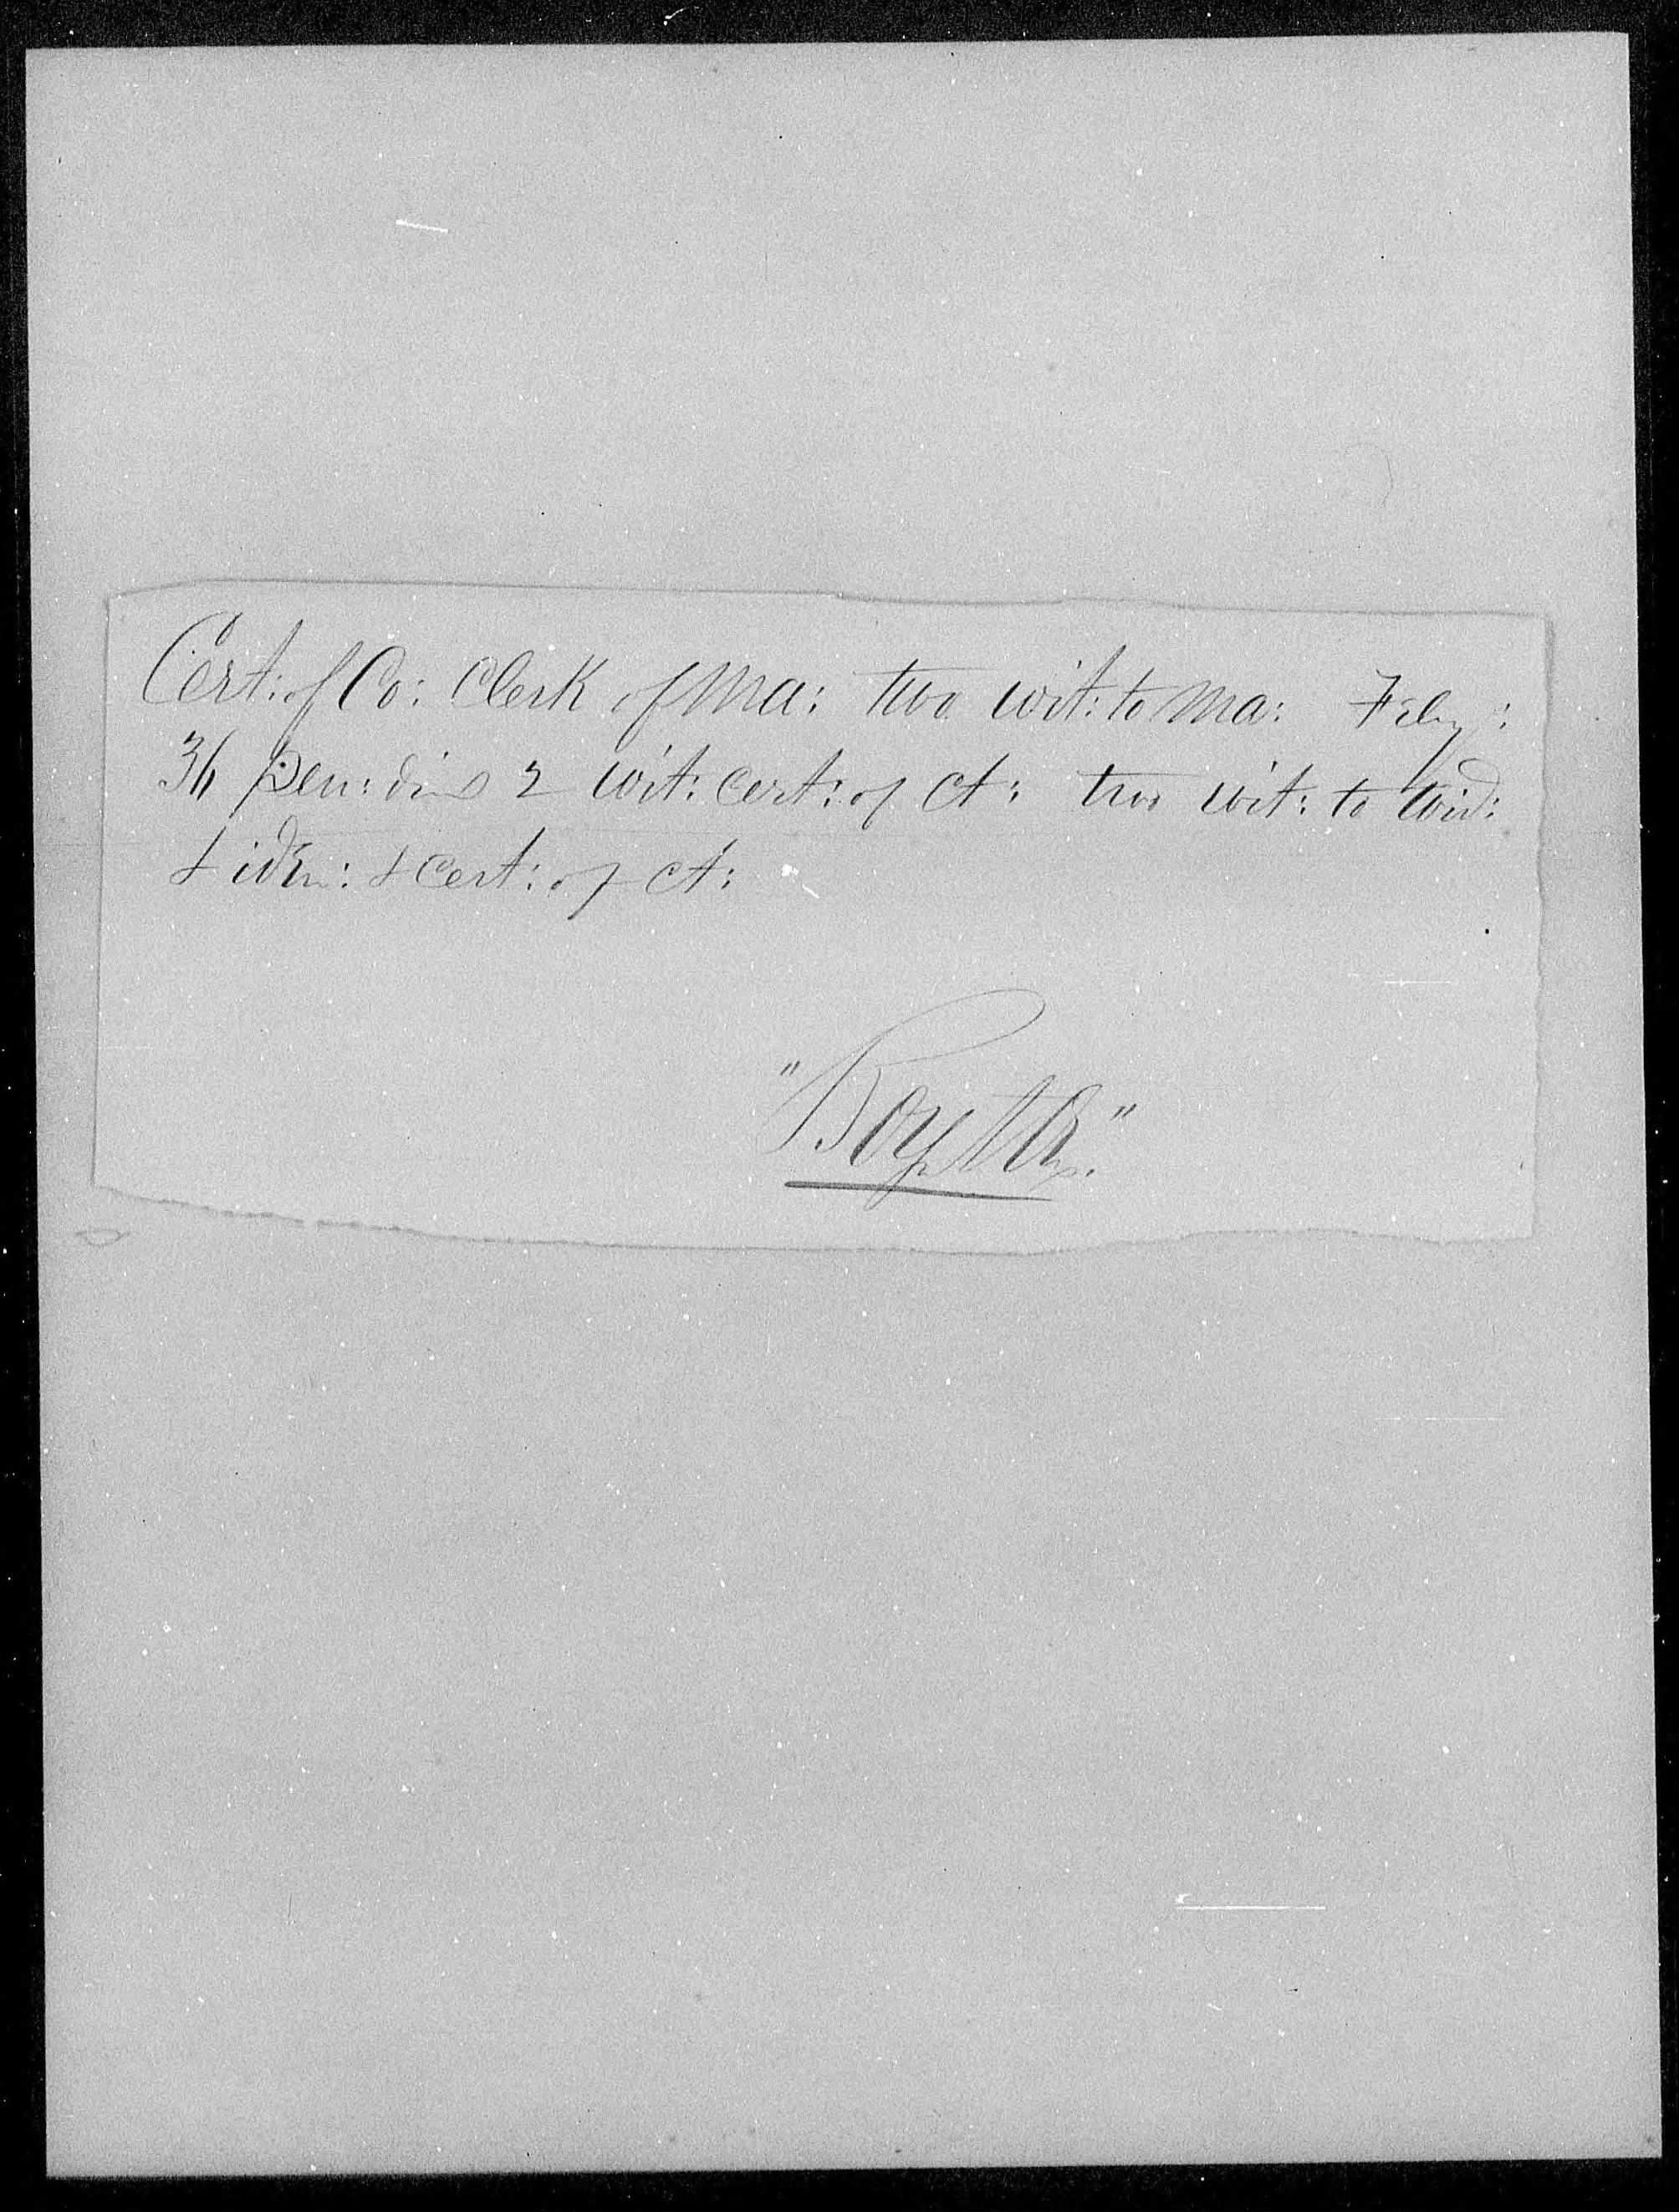 Cert: of Co: Clerk of Ma: two wit: to Ma: Feby:
36 Pen: dis 2 wit: cert: of ct: two wit: to wid:
& iden: & cert: of ct: